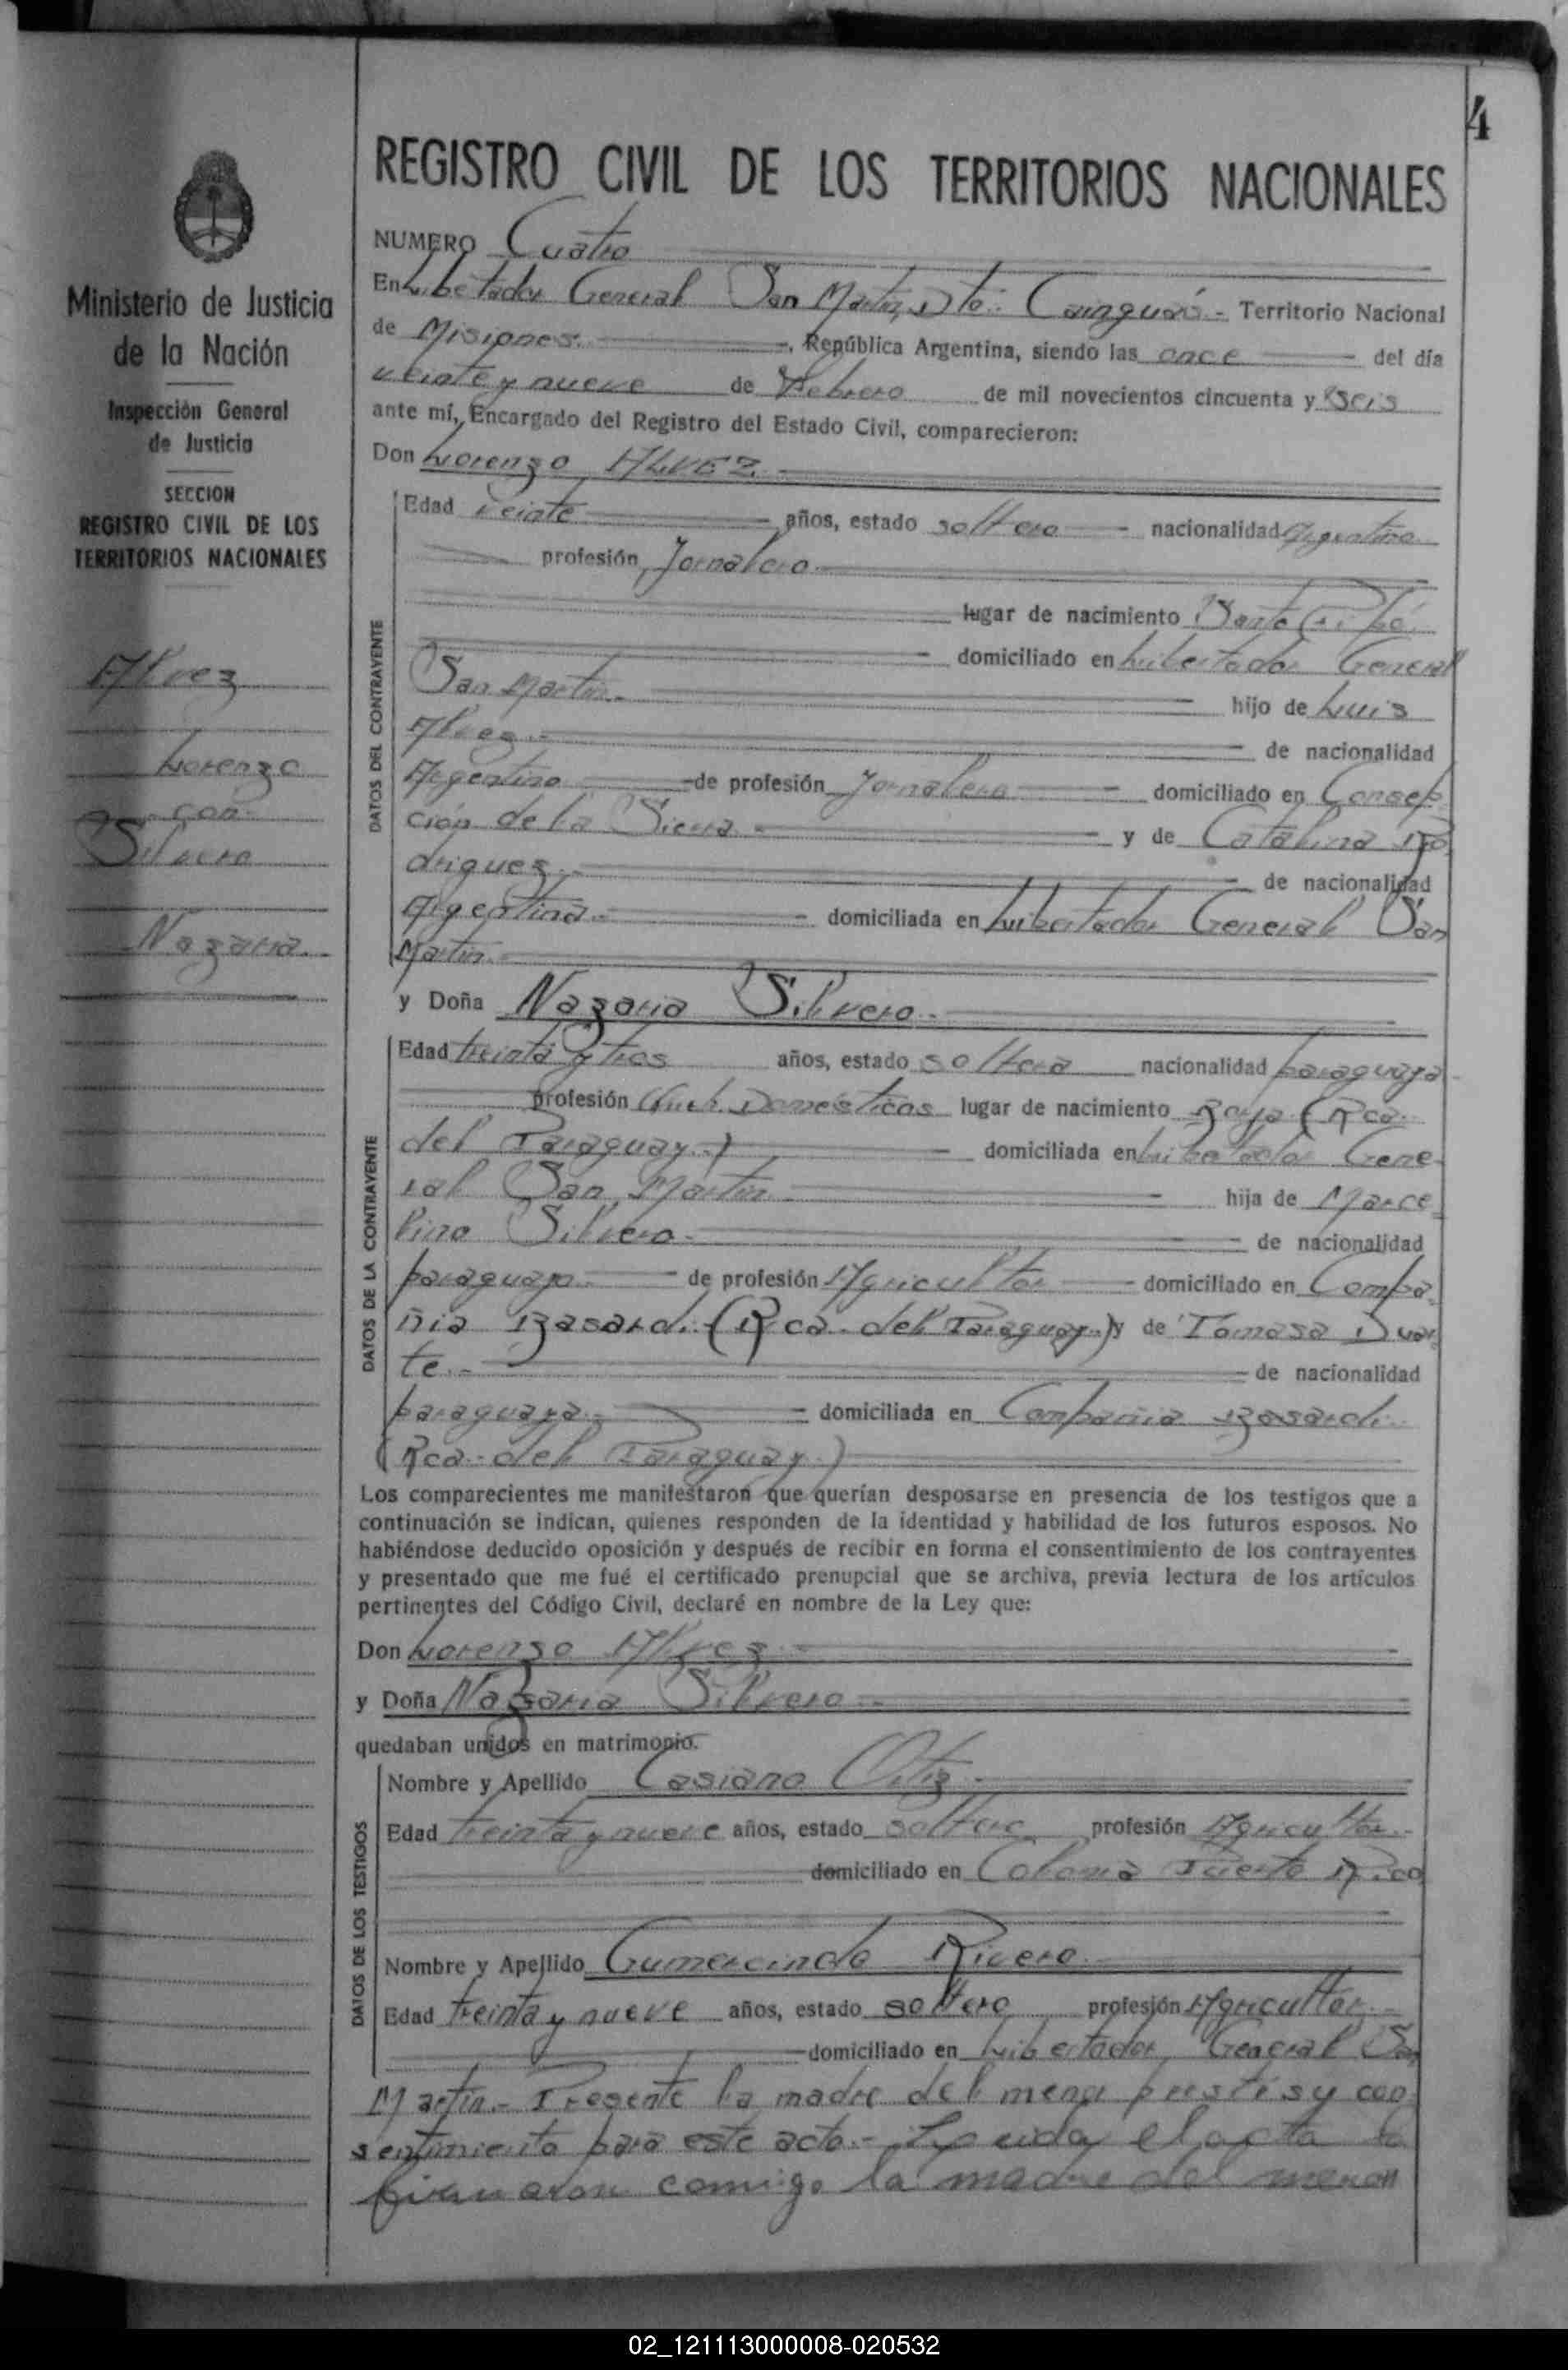 4
REGISTRO CIVIL DE LOS TERRITORIOS NACIONALES
Ministerio de Justicia
de la Nación
Inspección General
de Justicia
SECCION
REGISTRO CIVIL DE LOS
TERRITORIOS NACIONALES
Alvez
Lorenzo
con
Silvero
Nazaria.
NUMERO Cuatro
En Libertador General San Martin, Dto. Cainguás.- Territorio Nacional
de Misiones. República Argentina, siendo las once del día
veinte y nueve de Febrero de mil novecientos cincuenta y Seis
ante mí, Encargado del Registro del Estado Civil, comparecieron:
Don Lorenzo ALVEZ.
DATOS DEL CONTRAYENTE
Edad veinte años, estado soltero nacionalidad Argentino
profesión Jornalero
lugar de nacimiento Santo Pipó.
domiciliado en Libertador General
San Martin. hijo de Luis
Alvez.- de nacionalidad
Argentino de profesión Jornalero domiciliado en Consep
ción de la Sierra y de Catalina Ro
driguez.- de nacionalidad
Argentina.- domiciliada en Libertador General San
Martin.-
y Doña Nazaria Silvero.-
DATOS DE LA CONTRAYENTE
Edad treinta y tres años, estado soltera nacionalidad paraguaya
profesión Queh. Domésticos lugar de nacimiento (Rca.
del Paraguay.) domiciliada en Libertador Gene-
ral San Martin hija de Marce
lino Silvero.- de nacionalidad
paraguayo.- de profesión Agricultor domiciliado en Compa
ñia (Rca. del Paraguay.) y de Tomasa Duar
te.- de nacionalidad
paraguaya.- domiciliada en Compañia
(Rca. del Paraguay.)
Los comparecientes me manifestaron que querían desposarse en presencia de los testigos que a
continuación se indican, quienes responden de la identidad y habilidad de los futuros esposos. No
habiéndose deducido oposición y después de recibir en forma el consentimiento de los contrayentes
y presentado que me fué el certificado prenupcial que se archiva, previa lectura de los artículos
pertinentes del Código Civil, declaré en nombre de la Ley que:
Don Lorenzo Alvez.-
y Doña Nazaria Silvero.-
quedaban unidos en matrimonio.
DATOS DE LOS TESTIGOS
Nombre y Apellido Casiano Ortiz.-
Edad treinta y nueve años, estado soltero profesión Agricultor.-
domiciliado en Colonia Puerto Rico
Nombre y Apellido Gumercindo Rivero.
Edad treinta y nueve años, estado soltero profesión Agricultor.-
domiciliado en Libertador General San
Martin.- Presente la madre del menor su con
sentimiento para este acto.- Leida el acta la
firmaron comigo la madre del menor
02_121113000008-020532